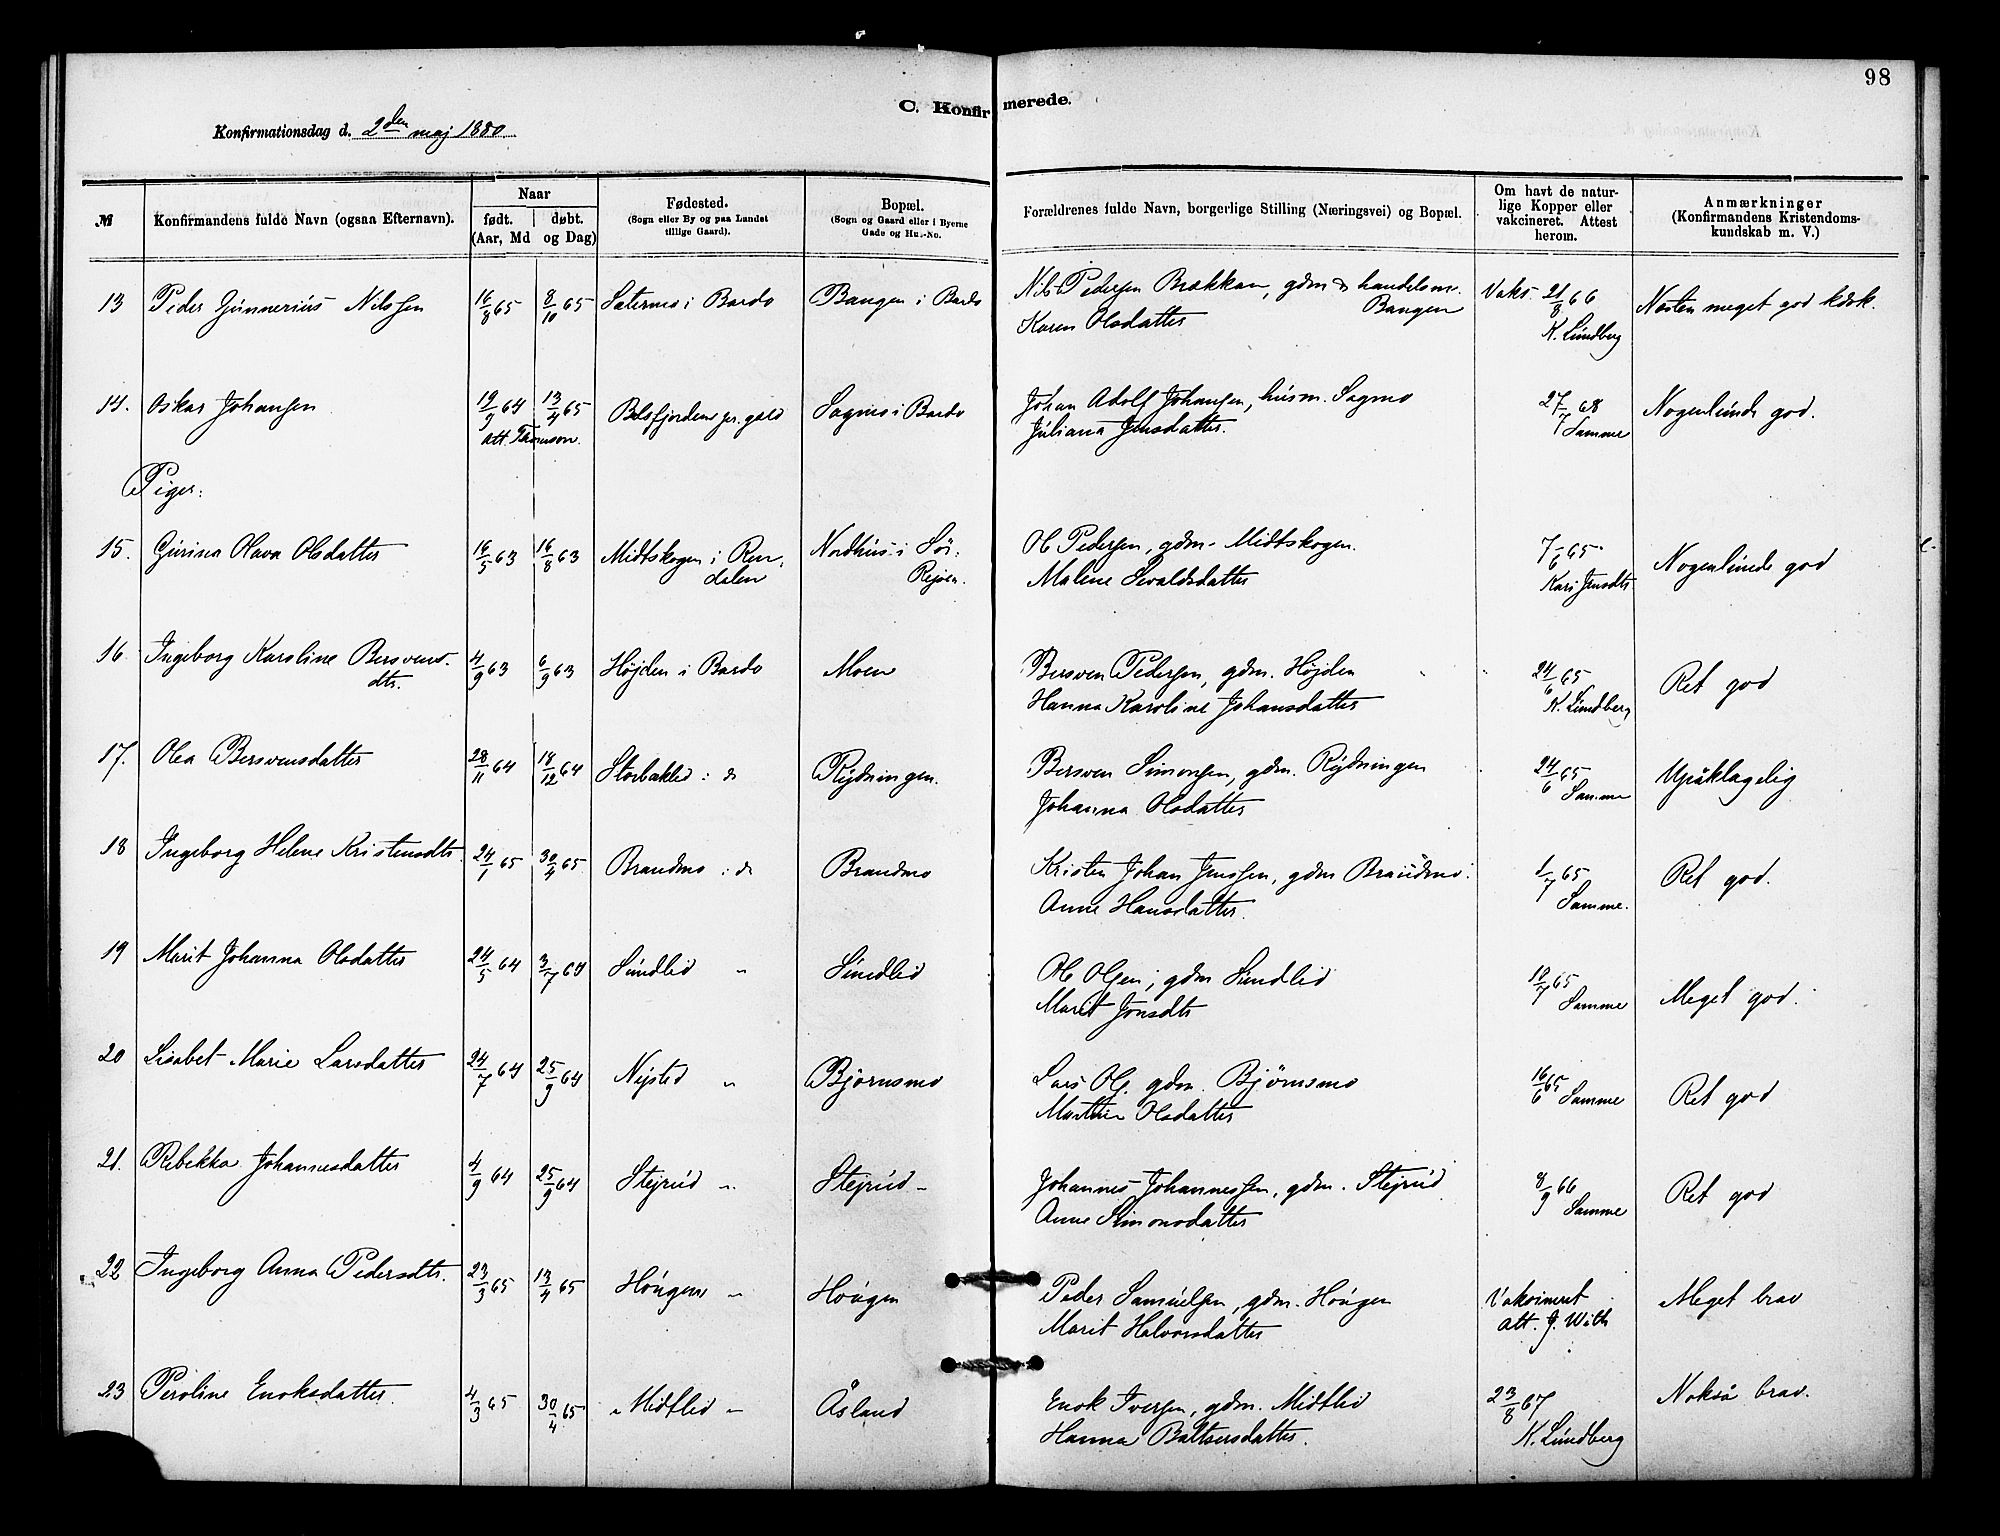 98
C. Konfirmerede.
Konfirmationsdag d. 2den maj 1880.
№ | Konfirmandens fulde Navn (ogsaa Efternavn). | Naar født. (Aar, Md | døbt. og Dag) | Fødested. (Sogn eller By og paa Landet tillige Gaard). | Bopæl. (Sogn og Gaard eller i Byerne Gade og Hus-No. | Forældrenes fulde Navn, borgerlige Stilling (Næringsvei) og Bopæl. | Om havt de naturlige Kopper eller vakcineret. Attest herom. | Anmærkninger (Konfirmandens Kristendomskundskab m. V.)
13 Peder Günnerius Nilssen 16/8 65 8/10 65 Sæternes i Bardo Bangen i Bardo Nils Pedersen Brækkan, gdm & handelsm. Bangen Vaks. 21/8 66 Næsten meget god kdsk.
Karen Olsdatter K. Lundberg
14. Oskar Johansen 19/9 64 13/4 65 Balsfjordens pr.gæld Sagmo i Bardo Johan Adolf Johansen, husm. Sagmo 27/7 68 Nogenlunde god.
att. Thomson. Juliana Jensdatter. Samme
Piger:
15. Gurina Olava Olsdatter 16/5 63 16/8 63 Midtskogen i Rendalen Nordhus i Sør-Rejsen. Ole Pedersen, gdm. Midtskogen. 7/6 65 Nogenlunde god
Malene Sevaldsdatter Kari Jensdtr
16 Ingeborg Karoline Bersvensdtr. 4/9 63 6/9 63 Højden i Bardo Moen Bersven Pedersen, gdm. Højden 24/6 65 Ret god
Hanna Karoline Johansdatter K. Lundberg
17. Olea Bersvensdatter 28/11 64 18/12 64 Storbaklid i do Rydningen. Bersven Simonsen, gdm. Rydningen 24/6 65 Upåklagelig
Johanna Olsdatter Samme
18 Ingeborg Helene Kristensdtr. 24/1 65 30/4 65 Brandmo i do Brandmo Kristen Johan Jenssen, gdm Brandmo. 1/7 65 Ret god.
Anne Hansdatter. Samme.
19 Marit Johanna Olsdatter 24/5 64 3/7 64 Sundlid " Sundlid Ole Olsen, gdm Sundlid 10/7 65 Meget god.
Marit Jonsdtr Samme
20 Lisabet Marie Larsdatter 24/7 64 25/9 64 Nysted " Bjørnsmo Lars Ols. gdm. Bjørnsmo 16/6 65 Samme Ret god
Olsdatter
21. Rebekka Johannesdatter 4/9 64 25/9 64 Stejrud " Stejrud Johannes Johannessen, gdm. Stejrud 8/9 66 Ret god
Anne Simonsdatter Samme
22 Ingeborg Anna Pedersdtr. 23/3 65 13/4 65 Hougen " Hougen Peder Samuelsen, gdm. Hougen Vaksineret Meget brav
Marit Halvorsdatter att. J. With
23 Peroline Enoksdatter. 4/3 65 30/4 65 " Midtlid " Åsland Enok Iversen, gdm. Midtlid 23/8 67 Nokså brav.
Hanna Baltsersdatter. K. Lundberg